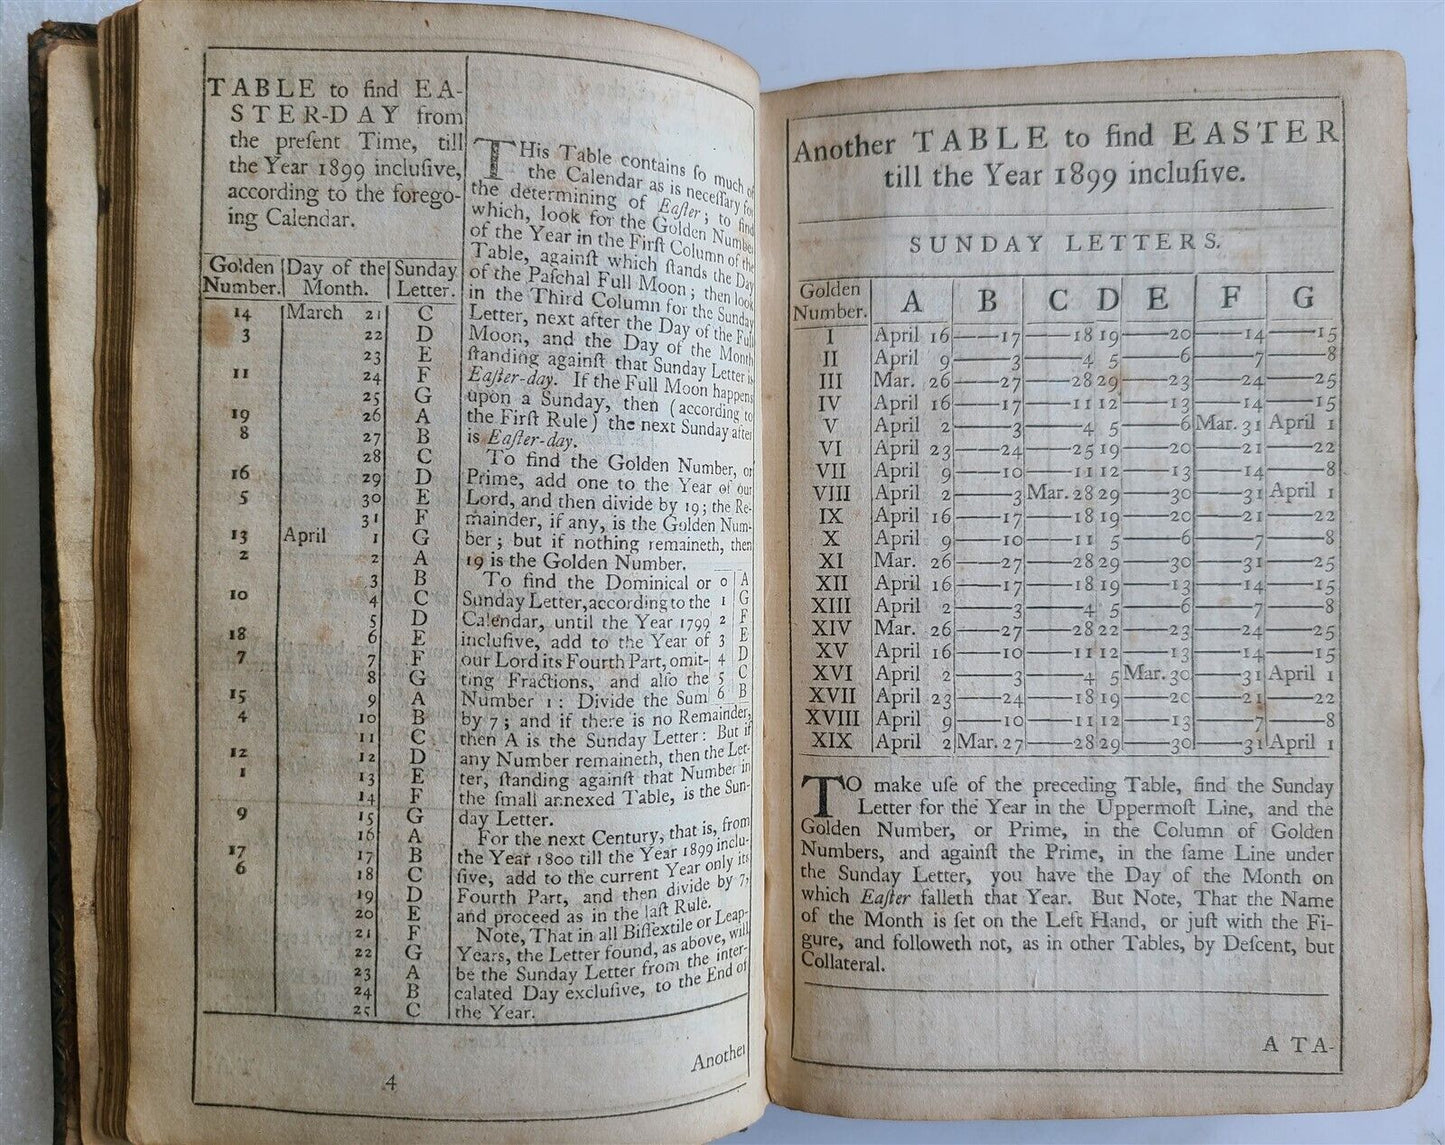 TABLE to find EA-
STER-DAY from
the preſent Time, till
the Year 1899 incluſive,
according to the forego-
ing Calendar.
Golden Number. | Day of the Month. | Sunday Letter.
14 | March 21 | C
3 | 22 | D
23 | E
11 | 24 | F
25 | G
19 | 26 | A
8 | 27 | B
28 | C
16 | 29 | D
5 | 30 | E
31 | F
13 | April 1 | G
2 | 2 | A
3 | B
10 | 4 | C
5 | D
18 | 6 | E
7 | 7 | F
8 | G
15 | 9 | A
4 | 10 | B
11 | C
12 | 12 | D
1 | 13 | E
14 | F
9 | 15 | G
16 | A
17 | 17 | B
6 | 18 | C
19 | D
20 | E
21 | F
22 | G
23 | A
24 | B
25 | C
THis Table contains ſo much of
the Calendar as is neceſſary for
the determining of Eaſter; to find
which, look for the Golden Number
of the Year in the Firſt Column of the
Table, againſt which ſtands the Day
of the Paſchal Full Moon; then look
in the Third Column for the Sunday
Letter, next after the Day of the Full
Moon, and the Day of the Month
ſtanding againſt that Sunday Letter is
Eaſter-day. If the Full Moon happens
upon a Sunday, then (according to
the Firſt Rule) the next Sunday after
is Eaſter-day.
To find the Golden Number, or
Prime, add one to the Year of our
Lord, and then divide by 19; the Re-
mainder, if any, is the Golden Num-
ber; but if nothing remaineth, then
19 is the Golden Number.
To find the Dominical or
Sunday Letter, according to the
Calendar, until the Year 1799
incluſive, add to the Year of
our Lord its Fourth Part, omit-
ting Fractions, and alſo the
Number 1: Divide the Sum
0 A
1 G
2 F
3 E
4 D
5 C
6 B
by 7; and if there is no Remainder,
then A is the Sunday Letter: But if
any Number remaineth, then the Let-
ter, ſtanding againſt that Number in
the ſmall annexed Table, is the Sun-
day Letter.
For the next Century, that is, from
the Year 1800 till the Year 1899 inclu-
ſive, add to the current Year only its
Fourth Part, and then divide by 7,
and proceed as in the laſt Rule.
Note, That in all Biſſextile or Leap-
Years, the Letter found, as above, will
be the Sunday Letter from the inter-
calated Day excluſive, to the End of
the Year.
Another
4
Another TABLE to find EASTER
till the Year 1899 incluſive.
SUNDAY LETTERS.
Golden Number. | A | B | C | D | E | F | G
I | April 16 | 17 | 18 | 19 | 20 | 14 | 15
II | April 9 | 3 | 4 | 5 | 6 | 7 | 8
III | Mar. 26 | 27 | 28 | 29 | 23 | 24 | 25
IV | April 16 | 17 | 11 | 12 | 13 | 14 | 15
V | April 2 | 3 | 4 | 5 | 6 | Mar. 31 | April 1
VI | April 23 | 24 | 25 | 19 | 20 | 21 | 22
VII | April 9 | 10 | 11 | 12 | 13 | 14 | 8
VIII | April 2 | 3 | Mar. 28 | 29 | 30 | 31 | April 1
IX | April 16 | 17 | 18 | 19 | 20 | 21 | 22
X | April 9 | 10 | 11 | 5 | 6 | 7 | 8
XI | Mar. 26 | 27 | 28 | 29 | 30 | 31 | 25
XII | April 16 | 17 | 18 | 19 | 13 | 14 | 15
XIII | April 2 | 3 | 4 | 5 | 6 | 7 | 8
XIV | Mar. 26 | 27 | 28 | 22 | 23 | 24 | 25
XV | April 16 | 10 | 11 | 12 | 13 | 14 | 15
XVI | April 2 | 3 | 4 | 5 | Mar. 30 | 31 | April 1
XVII | April 23 | 24 | 18 | 19 | 20 | 21 | 22
XVIII | April 9 | 10 | 11 | 12 | 13 | 7 | 8
XIX | April 2 | Mar. 27 | 28 | 29 | 30 | 31 | April 1
TO make uſe of the preceding Table, find the Sunday
Letter for the Year in the Uppermoſt Line, and the
Golden Number, or Prime, in the Column of Golden
Numbers, and againſt the Prime, in the ſame Line under
the Sunday Letter, you have the Day of the Month on
which Eaſter falleth that Year. But Note, That the Name
of the Month is ſet on the Left Hand, or juſt with the Fi-
gure, and followeth not, as in other Tables, by Deſcent, but
Collateral.
A TA-